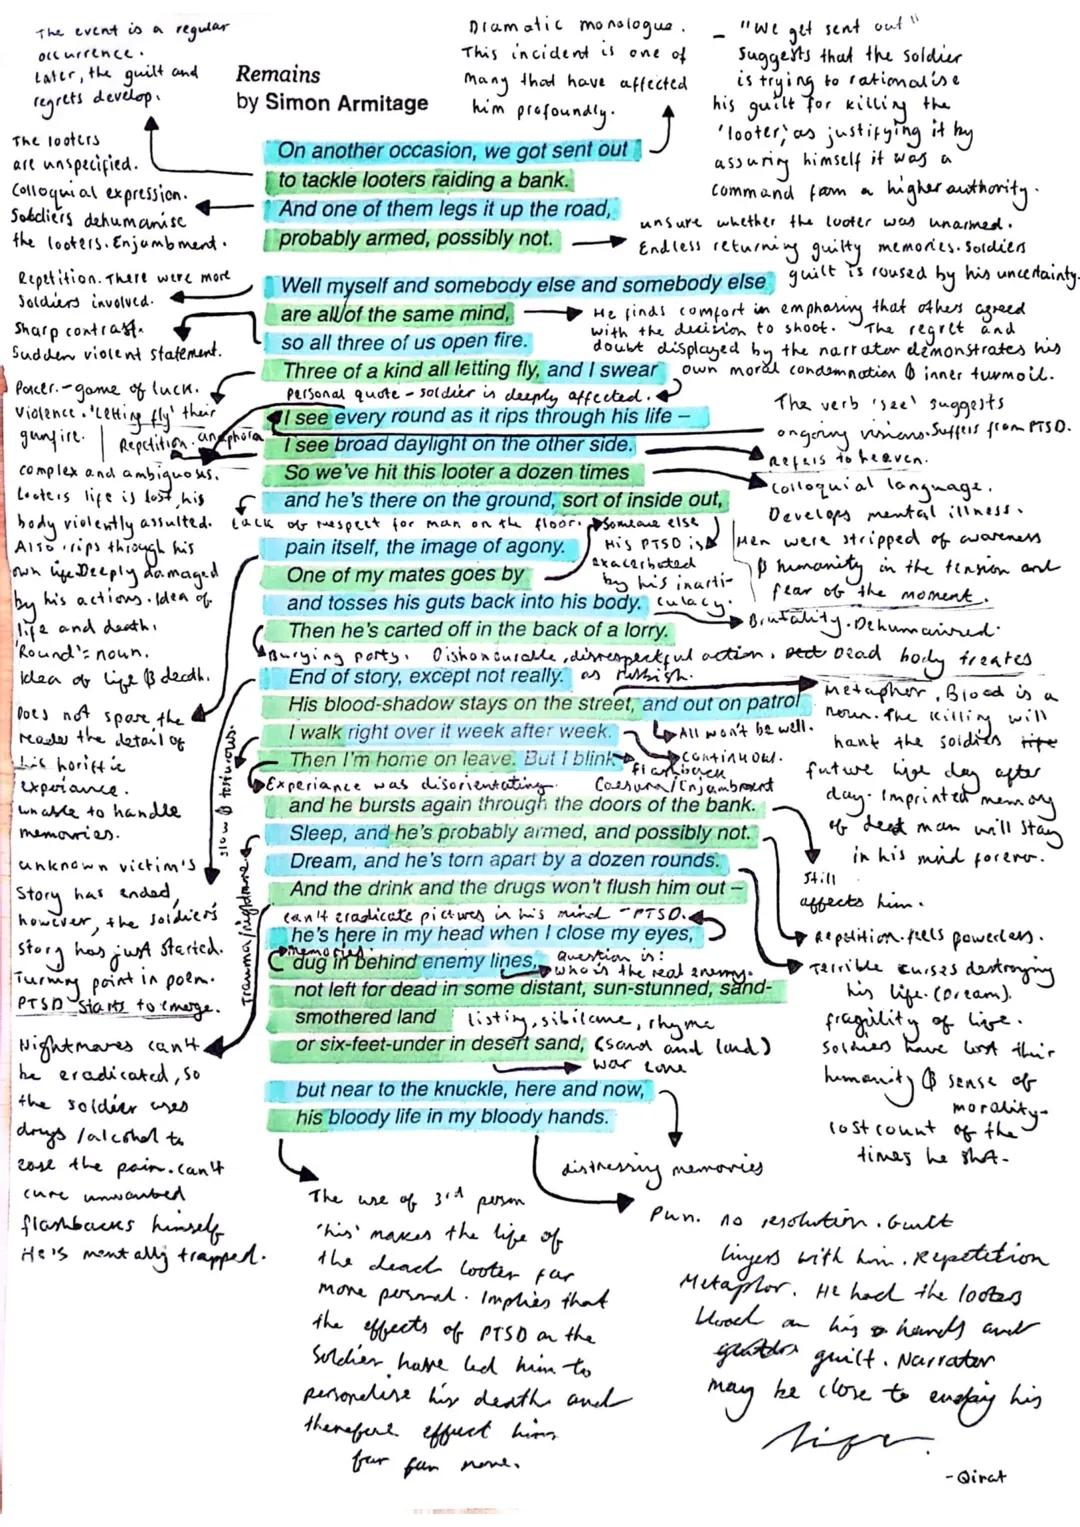 The event is a regular
occurrence.
Later, the guilt and
regrets develop.
Dramatic monologue.
This incident is one of
many that have affected
him profoundly.
- "We get sent out"
Suggests that the soldier
is trying to rationalise
his guilt for killing the
'looter', as justifying it by
assuring himself it was a
command from a higher authority.
Remains
by Simon Armitage
The looters
are unspecified.
Colloquial expression.
Soldiers dehumanise
the looters. Enjambment.
On another occasion, we got sent out
to tackle looters raiding a bank.
And one of them legs it up the road,
probably armed, possibly not.
unsure whether the looter was unarmed.
Endless returning guilty memories. Soldiers
guilt is roused by his uncertainty.
Repetition. There were more
soldiers involved.
Sharp contrast.
Sudden violent statement.
Well myself and somebody else and somebody else
are all of the same mind,
so all three of us open fire.
Three of a kind all letting fly, and I swear
He finds comfort in emphasing that others agreed
with the decision to shoot. The regret and
doubt displayed by the narrator demonstrates his
own moral condemnation & inner turmoil.
Poker. - game of luck.
Violence. 'Letting fly' their
gunfire.
Repetition. anaphora
personal quote - soldier is deeply affected.
I see every round as it rips through his life –
I see broad daylight on the other side.
So we've hit this looter a dozen times
and he's there on the ground, sort of inside out,
The verb 'see' suggests
ongoing visions. Suffers from PTSD.
Refers to heaven.
Colloquial language.
Develops mental illness.
Men were stripped of awareness
& humanity in the tension and
fear of the moment.
complex and ambiguous.
Looters life is lost, his
body violently assulted.
Also 'rips through his
own life. Deeply damaged
by his actions. Idea of
life and death.
'Round' = noun.
Idea of life & death.
Lack of respect for man on the floor.
Someone else
His PTSD is
exacerbated
by his inarti-
culacy.
pain itself, the image of agony.
One of my mates goes by
and tosses his guts back into his body.
Then he's carted off in the back of a lorry.
Brutality. Dehumanised.
Burying party. Dishonourable, disrespectful action. Dead body treates
as rubbish.
Does not spare the
reader the detail of
his horiffic
experiance.
unable to handle
memorries.
slow & torturous.
End of story, except not really.
His blood-shadow stays on the street, and out on patrol
I walk right over it week after week.
Then I'm home on leave. But I blink
All won't be well.
Continuous.
flashback
Experiance was disorientating.
Caesura/Enjambment
Metaphor. Blood is a
noun. The killing will
hant the soldiers
future life day after
day. Imprinted memory
of dead man will stay
in his mind forever.
and he bursts again through the doors of the bank.
Sleep, and he's probably armed, and possibly not.
Dream, and he's torn apart by a dozen rounds.
And the drink and the drugs won't flush him out –
Still
affects him.
unknown victim's
Story has ended,
however, the soldier's
story has just started.
Turning point in poem.
PTSD starts to emerge.
Trauma/nightmare.
can't eradicate pictures in his mind - PTSD.
he's here in my head when I close my eyes,
memories.
dug in behind enemy lines,
question is:
who is the real enemy.
not left for dead in some distant, sun-stunned, sand-
smothered land
listing, sibilance, rhyme
(sand and land)
or six-feet-under in desert sand,
war zone
Repetition. feels powerless.
Terrible curses destroying
his life. (Dream).
fragility of live.
Soldiers have lost their
humanity & sense of
morality-
lost count of the
times he shot.
Nightmares can't
be eradicated, so
the soldier uses
drugs/alcohol to
ease the pain. can't
cure unwanted
flashbacks himself
He's mentally trapped.
but near to the knuckle, here and now,
his bloody life in my bloody hands.
distressing memories
The use of 3rd person
'his' makes the life of
the dead looter far
more personal. Implies that
the effects of PTSD on the
soldier have led him to
personalise his death and
therefore effect him
far far more.
Pun. no resolution. Guilt
lingers with him. Repetition
Metaphor. He had the looters
blood on his hands and
guilt. Narrator
may be close to ending his
life.
-Qirat